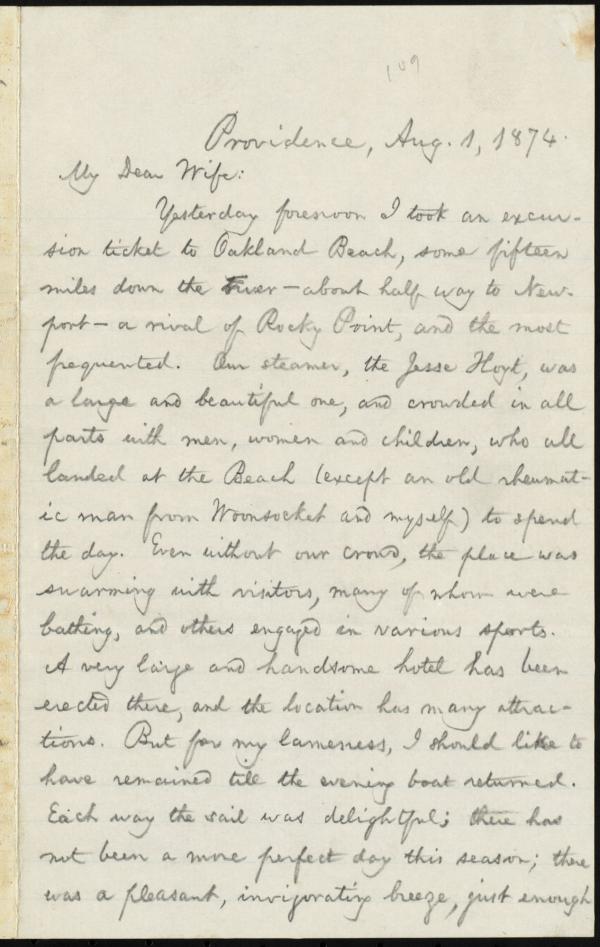 109
Providence, Aug. 1, 1874.
My Dear Wife:
Yesterday forenoon I took an excur-
sion ticket to Oakland Beach, some fifteen
miles down the river — about half way to New-
port — a rival of Rocky Point, and the most
frequented. Our steamer, the Jesse Hoyt, was
a large and beautiful one, and crowded in all
parts with men, women and children, who all
landed at the Beach (except an old rheumat-
ic man from Woonsocket and myself) to spend
the day. Even without our crowd, the place was
swarming with visitors, many of whom were
bathing, and others engaged in various sports.
A very large and handsome hotel has been
erected there, and the location has many attrac-
tions. But for my lameness, I should like to
have remained till the evening boat returned.
Each way the sail was delightful; there has
not been a more perfect day this season; there
was a pleasant, invigorating breeze, just enough